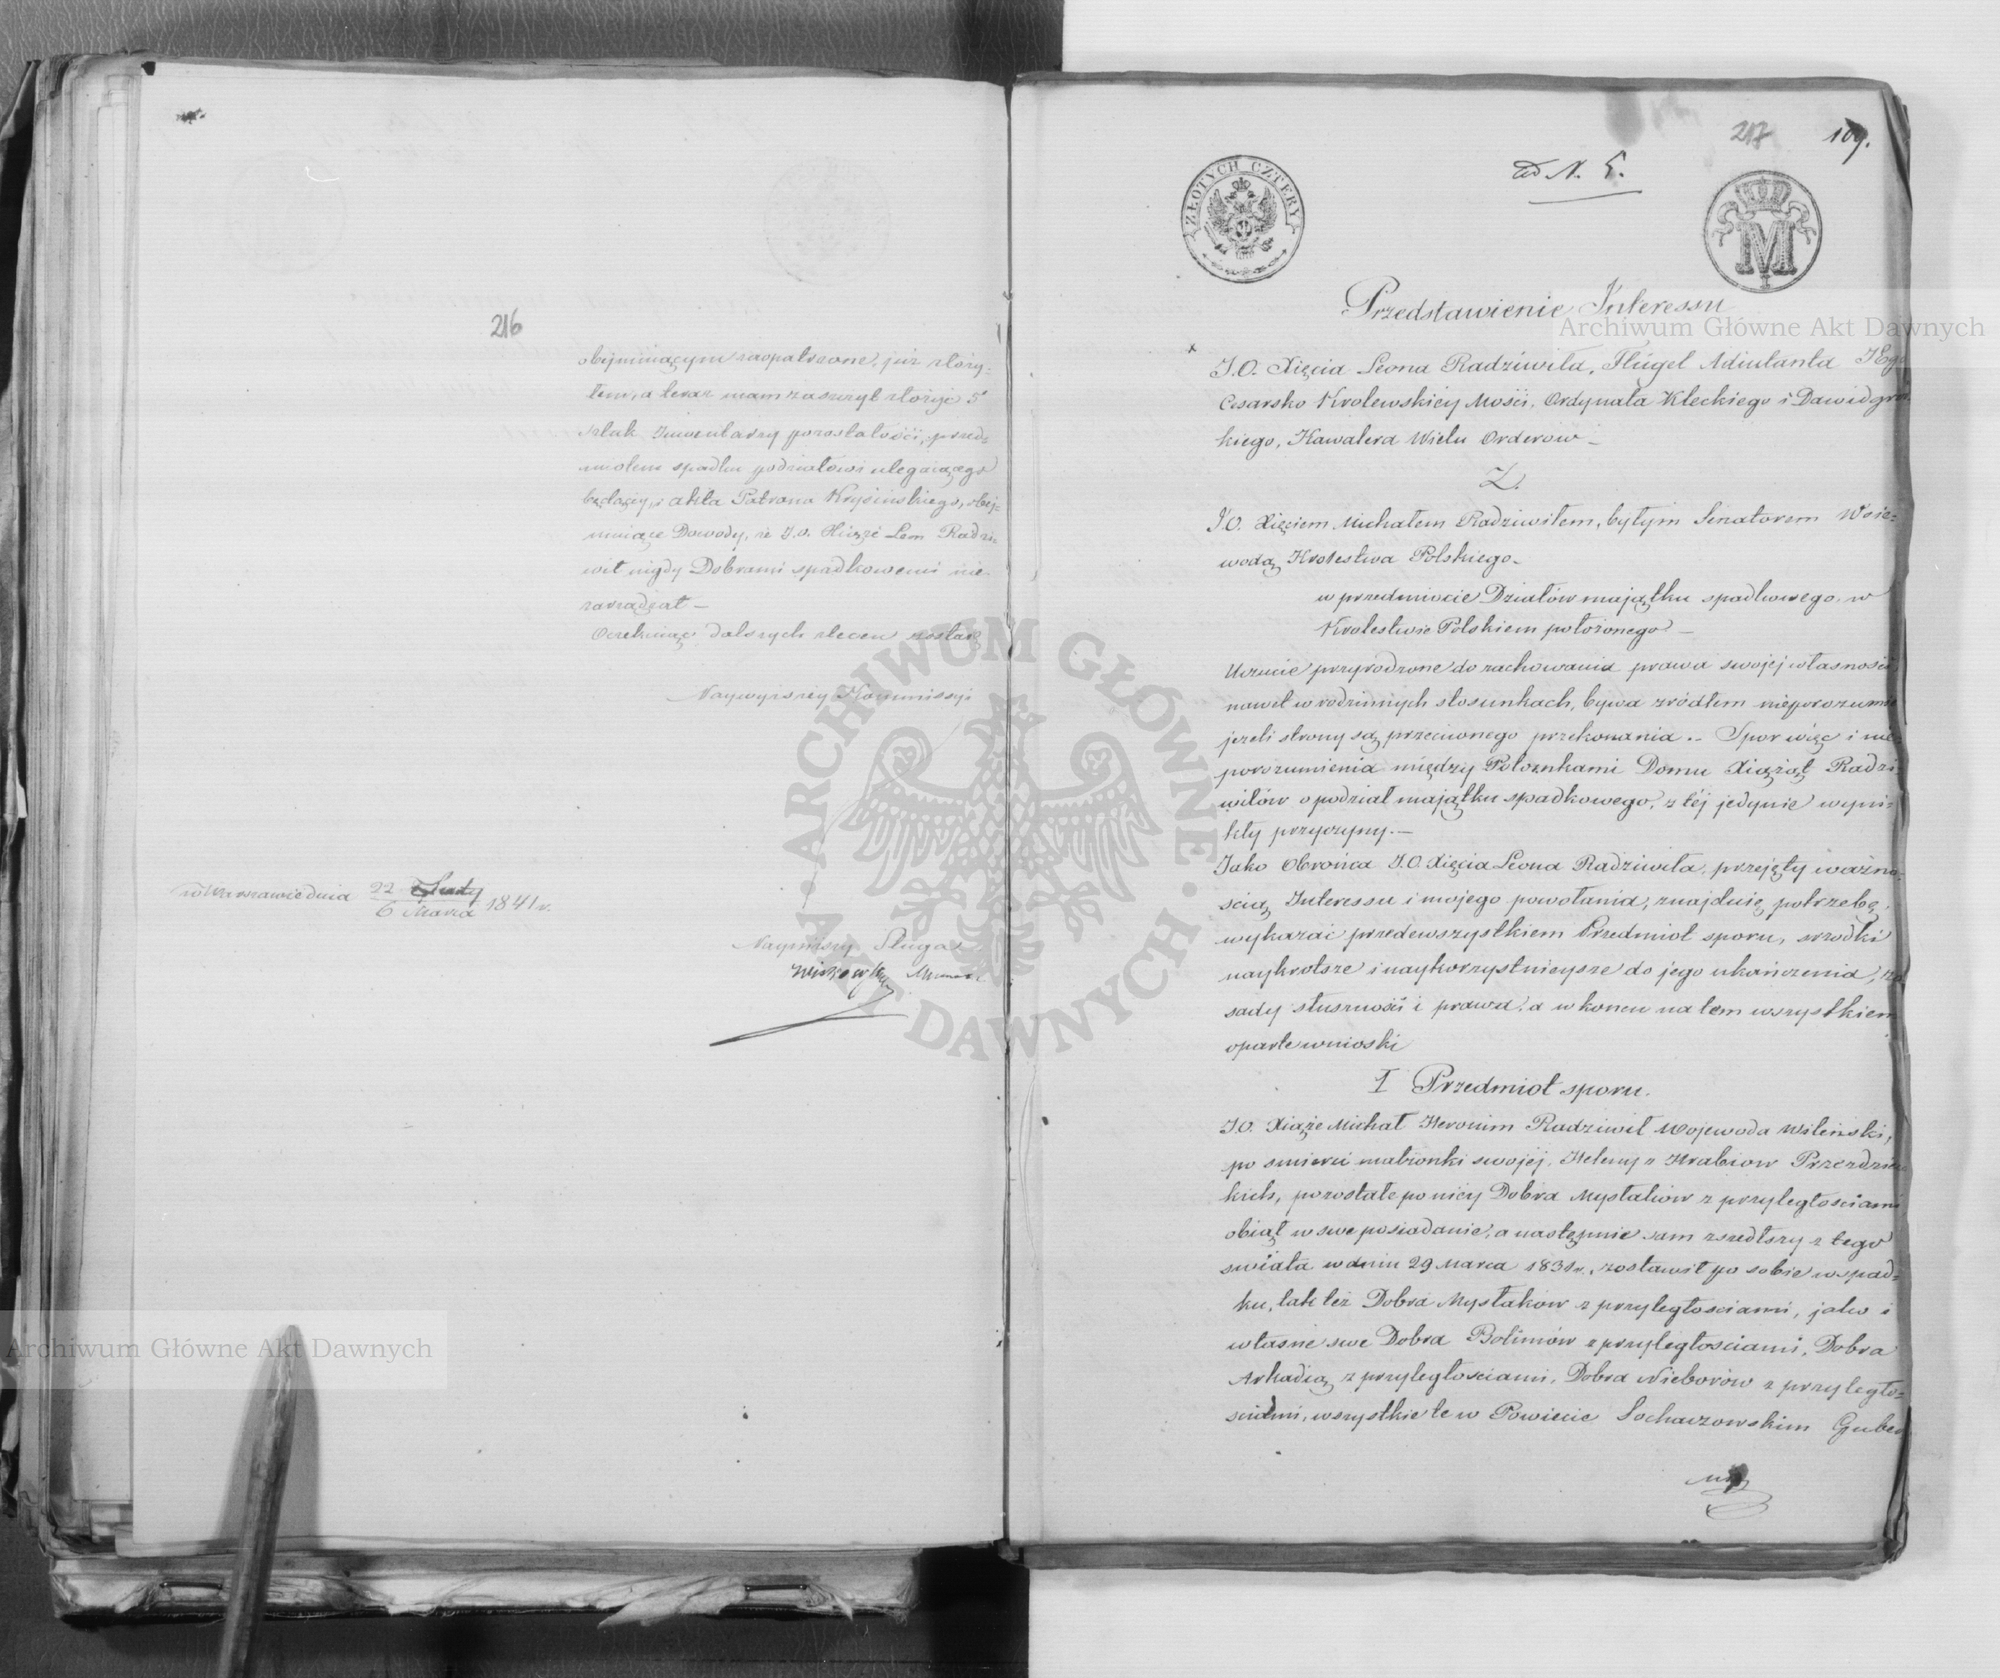 216
obejmującym zaopatrzone, już złoży-
łem, a teraz mam zaszczyt złożyć 5
sztuk Inwentarzy pozostałości, przed-
miotem spadku podziałowi ulegaiącego
będący, i akta Patrona Krysińskiego, obej-
muiące Dowody, że J.O. Xiąże Leon Radzi-
wił nigdy Dobrami spadkowemi nie
zarządzał –
Oczekuiąc dalszych zleceń zostaię
Naywyższey Kommissyi
w Warszawie dnia 22 Lutego / 6 Marca 1841 r.
Nayniższy Sługa
217 109.
ad N. 5.
ZŁOTYCH CZTERY
M
Przedstawienie Interessu
J.O. Xięcia Leona Radziwiła, Flügel Adiutanta JEgo
Cesarsko Krolewskiey Mości, Ordynata Kleckiego i Dawidgro-
kiego, Kawalera Wielu Orderów –
Z.
J.O. Xięciem Michałem Radziwiłem, byłym Senatorem Woie-
wodą Krolestwa Polskiego –
w przedmiocie Działów majątku spadkowego, w
Krolestwie Polskiem położonego –
Uczucie przyrodzone do zachowania prawa swojej własności
nawet w rodzinnych stosunkach, bywa zródłem nieporozumie
jezeli strony są przeciwnego przekonania. – Spor więc i nie-
porozumienia między Potomkami Domu Xiążąt Radzi-
wiłów o podział majątku spadkowego, z téj jedynie wyni-
kły przyczyny. –
Jako Obrońca J.O. Xięcia Leona Radziwiła, przejęty ważno-
scią Interessu i mojego powołania, znajduię potrzebę,
wykazać przedewszystkiem Przedmiot sporu, srzodki
naykrotsze i naykorzystnieysze do jego ukończenia, za
sady słuszności i prawa, a w koncu na tem wszystkiem
oparte wnioski
I Przedmiot sporu.
J.O. Xiąże Michał Heronim Radziwił Wojewoda Wileński,
po smierci małzonki swojej, Heleny z Hrabiow Przezdziec
kich, pozostałe po niey Dobra Mysłaków z przyległosciami
obiął w swe posiadanie, a następnie sam zszedłszy z tego
swiata w dniu 29 Marca 1831 r., zostawił po sobie w spad-
ku, tak też Dobra Mysłaków z przyległosciami, jako i
własne swe Dobra Bolimów z przyległosciami, Dobra
Arkadią z przyległosciami, Dobra Nieborów z przyległo-
sciami, wszystkie te w Powiecie Sochaczowskim Guber
Archiwum Główne Akt Dawnych
Archiwum Główne Akt Dawnych
ARCHIWUM GŁÓWNE AKT DAWNYCH